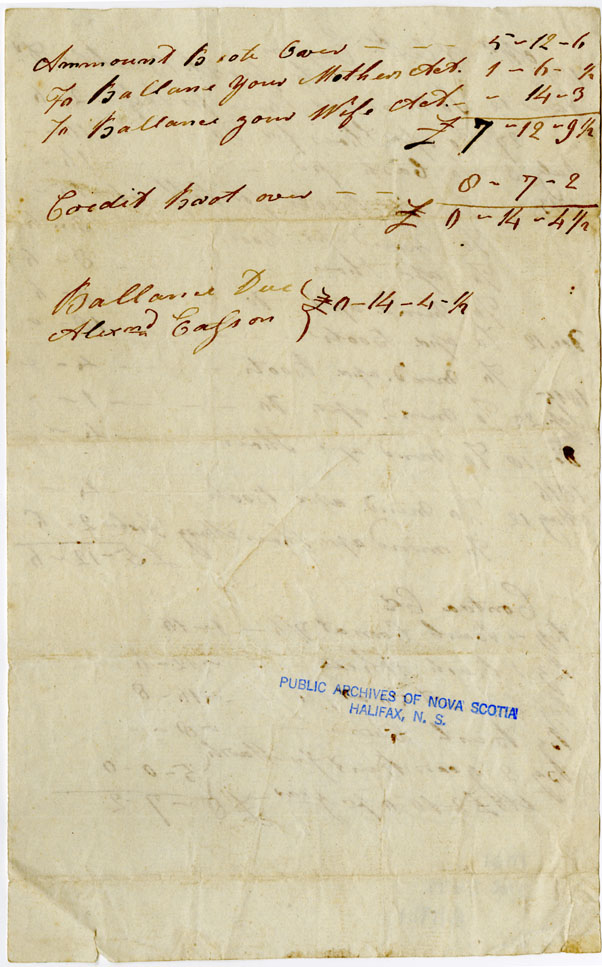 Ammount Brote Over — — — 5–12–6
To Ballane Your Mothers Act. 1–6–½
To Ballance your Wife Act.– – 14–3
£ 7–12–9½
Credit Brot over — — 8–7–2
£ 0–14–4½
Ballance Due } £0–14–4–½
Alexnd Easson
PUBLIC ARCHIVES OF NOVA SCOTIA
HALIFAX, N. S.